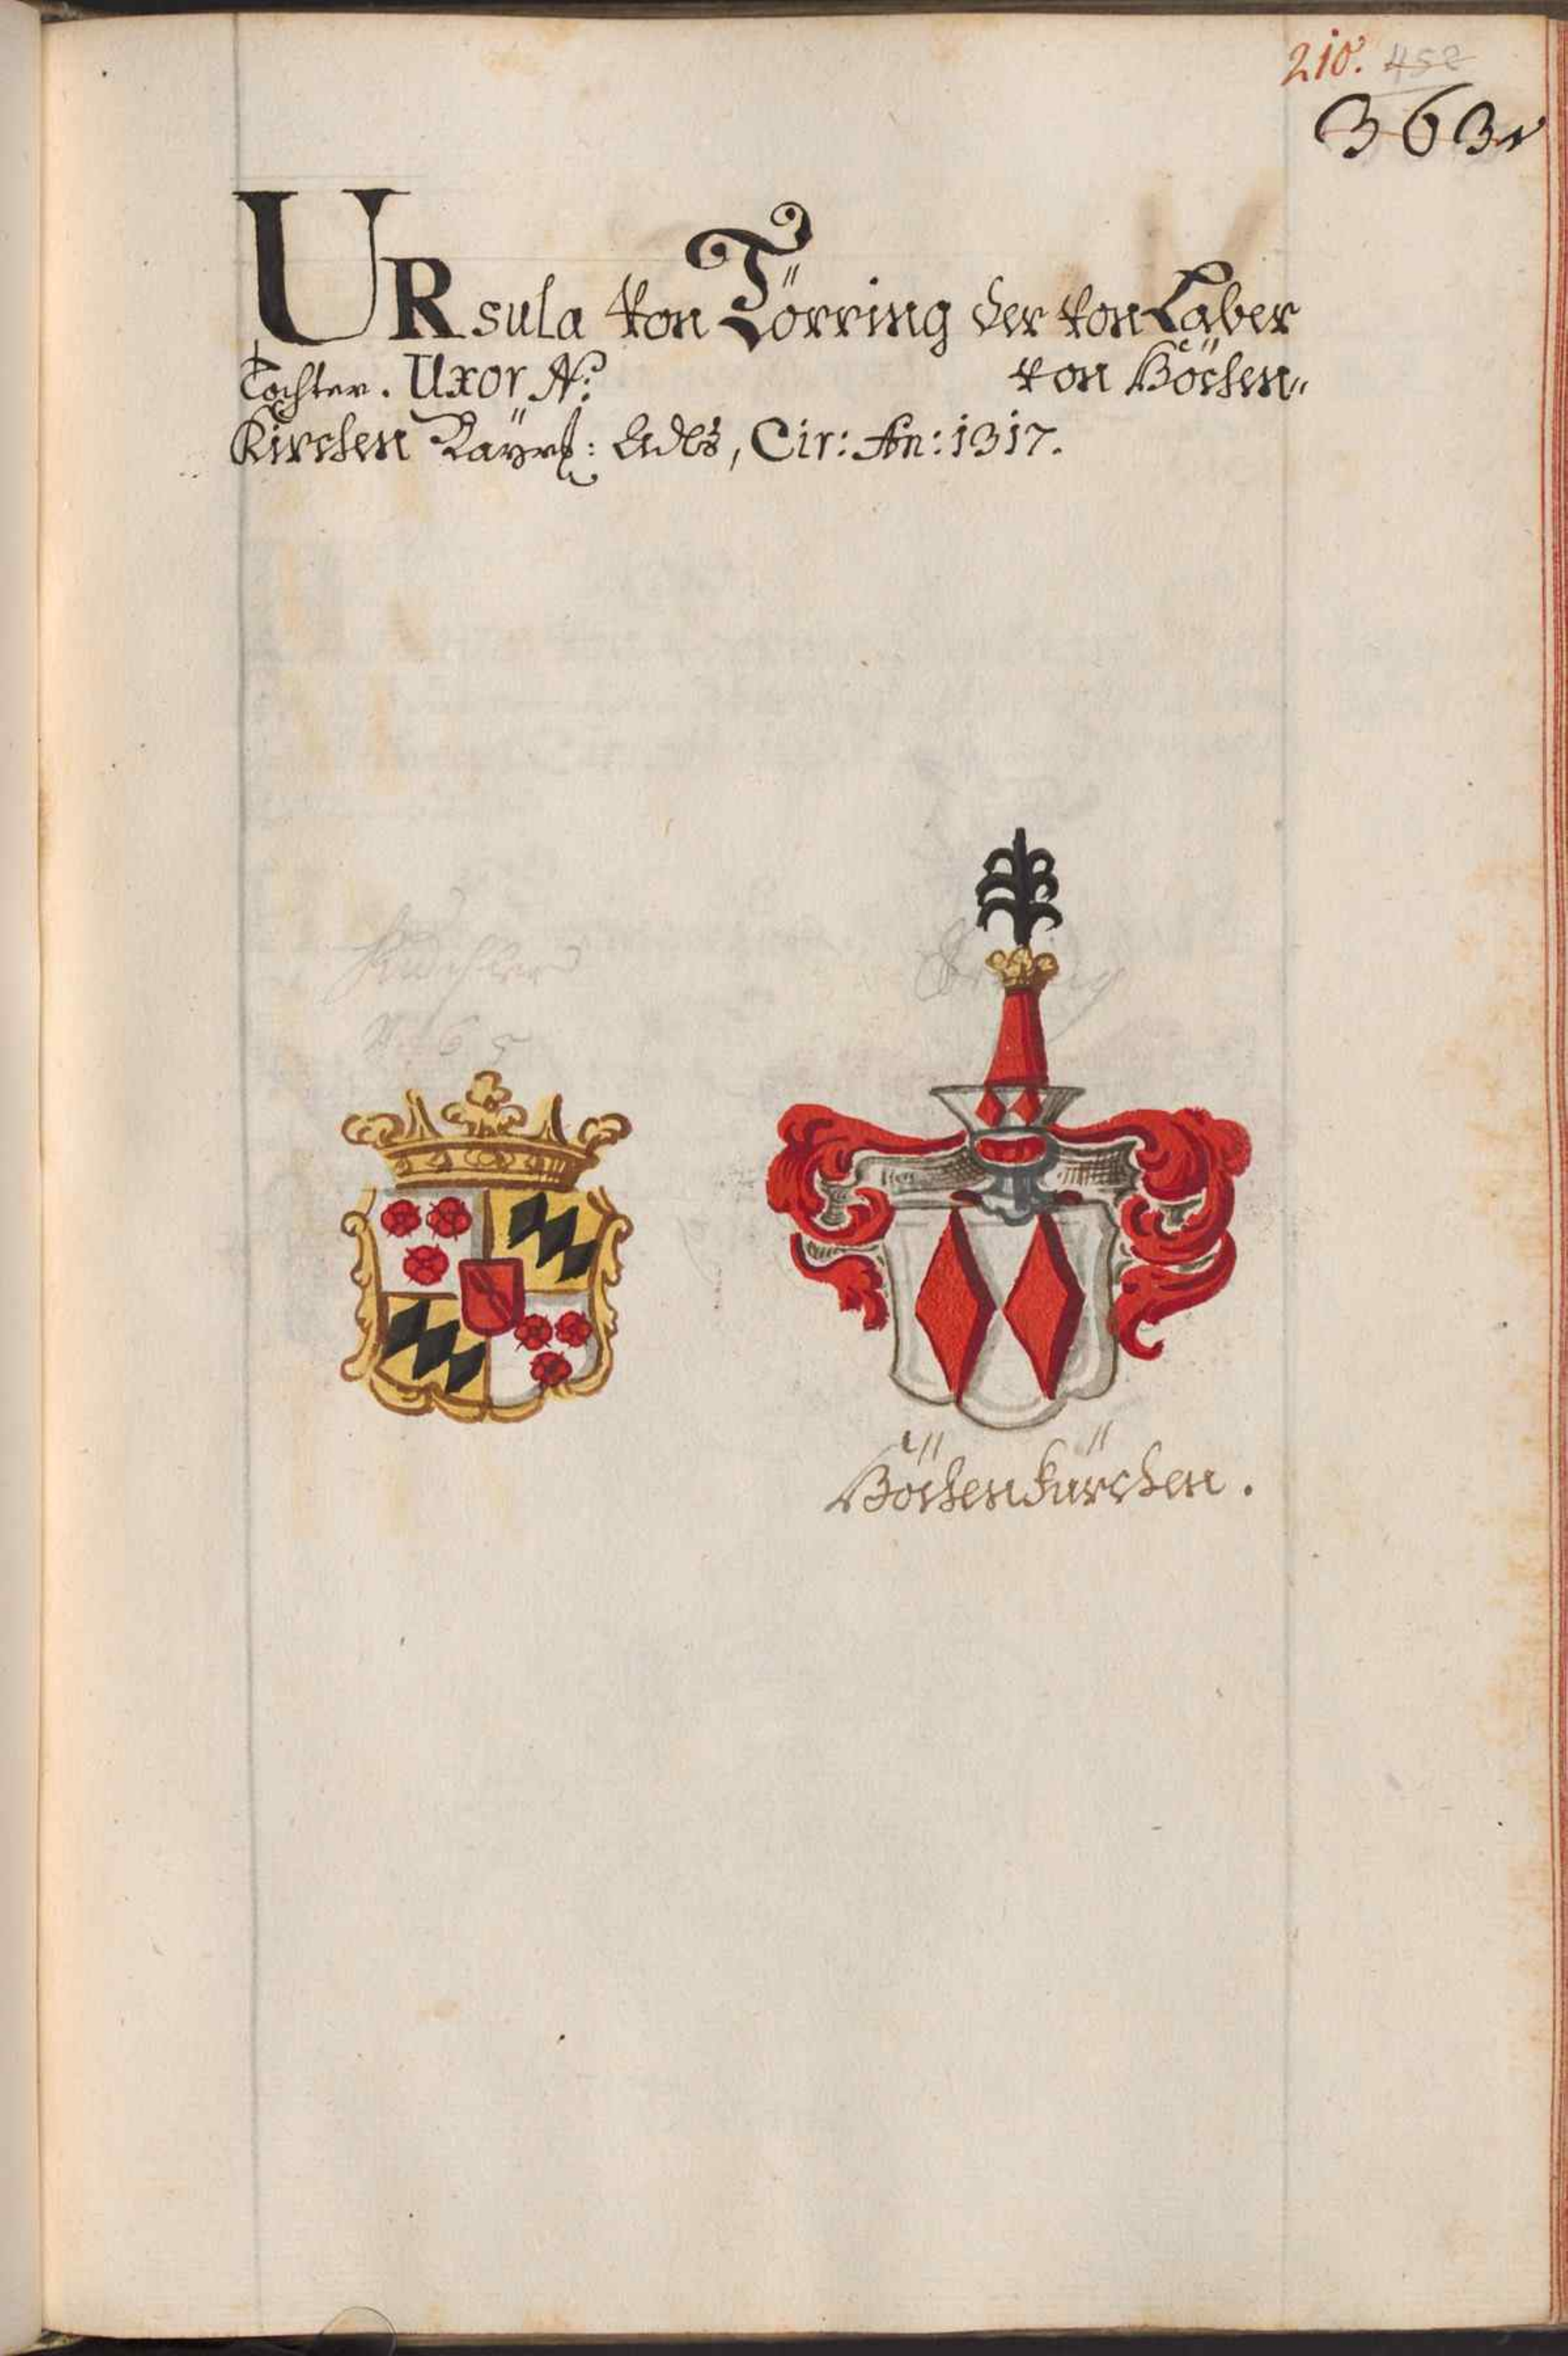 210. 452
363r
URsula von Törring der von Laber
Tochter. Uxor N: von Höchen„
Kirchen Bayrs: Adls, Cir: An: 1317.
65
Höchenkürchen.